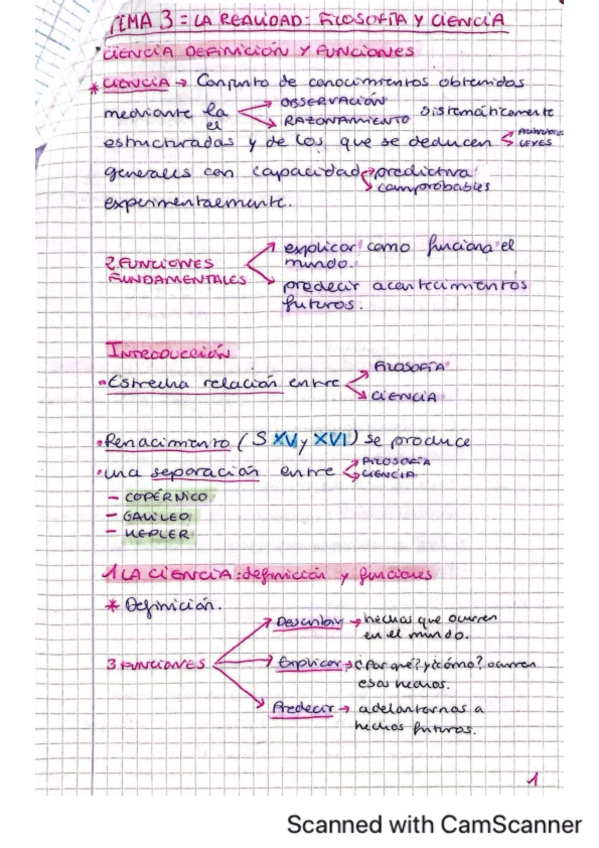 TEMA 3 = LA REALIDAD: FILOSOFÍA Y CIENCIA
CIENCIA DEFINICIÓN Y FUNCIONES
* CIENCIA → Conjunto de conocimientos obtenidos
mediante la → OBSERVACIÓN
el → RAZONAMIENTO sistemáticamente
estructuradas y de los que se deducen
LEYES
generales con capacidad → predictiva
→ comprobables
experimentalmente.
2 FUNCIONES FUNDAMENTALES
→ explicar como funciona el
mundo.
→ predecir acontecimientos
futuros.
INTRODUCCIÓN
• Estrecha relación entre → FILOSOFÍA
→ CIENCIA
• Renacimiento (S XV y XVI) se produce
• una separación entre → FILOSOFÍA
→ CIENCIA
- COPÉRNICO
- GALILEO
- KEPLER
1 LA CIENCIA: definición y funciones
* Definición.
3 FUNCIONES
→ Describir → hechos que ocurren
en el mundo.
→ Explicar → ¿Por qué? y ¿cómo? ocurren
esos hechos.
→ Predecir → adelantarnos a
hechos futuros.
1
Scanned with CamScanner